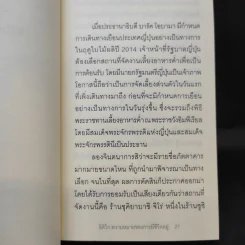 เมื่อประธานาธิบดี บารัค โอบามา มีกำหนด
การเดินทางเยือนประเทศญี่ปุ่นอย่างเป็นทางการ
ในฤดูใบไม้ผลิปี 2014 เจ้าหน้าที่รัฐบาลญี่ปุ่น
ต้องเลือกสถานที่จัดงานเลี้ยงอาหารค่ำเพื่อเป็น
การต้อนรับ โดยมีนายกรัฐมนตรีญี่ปุ่นเป็นเจ้าภาพ
โอกาสนี้ถือว่าเป็นการจัดเลี้ยงส่วนตัวในวันแรก
ที่เพิ่งเดินทางมาถึง ก่อนที่จะมีกำหนดการเยือน
อย่างเป็นทางการในวันรุ่งขึ้น ซึ่งจะรวมถึงพิธี
พระราชทานเลี้ยงอาหารค่ำ ณ พระราชวังอิมพีเรียล
โดยมีสมเด็จพระจักรพรรดิแห่งญี่ปุ่นและสมเด็จ
พระจักรพรรดินีเป็นประธาน
ลองจินตนาการสิว่าจะมีรายชื่อภัตตาคาร
มากมายขนาดไหน ที่ถูกนำมาพิจารณาเป็นทาง
เลือก จนในที่สุด ผลการตัดสินก็ประกาศออกมา
โดยได้รับการยอมรับเป็นเสียงเดียวกันว่าสถานที่
จัดงานนี้คือ ร้านซูคิยาบาชิ จิโร่ หนึ่งในร้านซูชิ
27